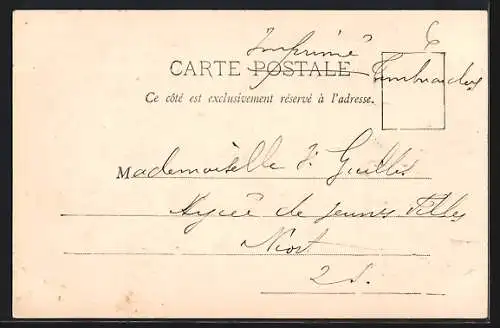 Imprimé
CARTE POSTALE
Ce côté est exclusivement réservé à l'adresse.
Mademoiselle
Lycée de jeunes Filles
Niort
2 S.